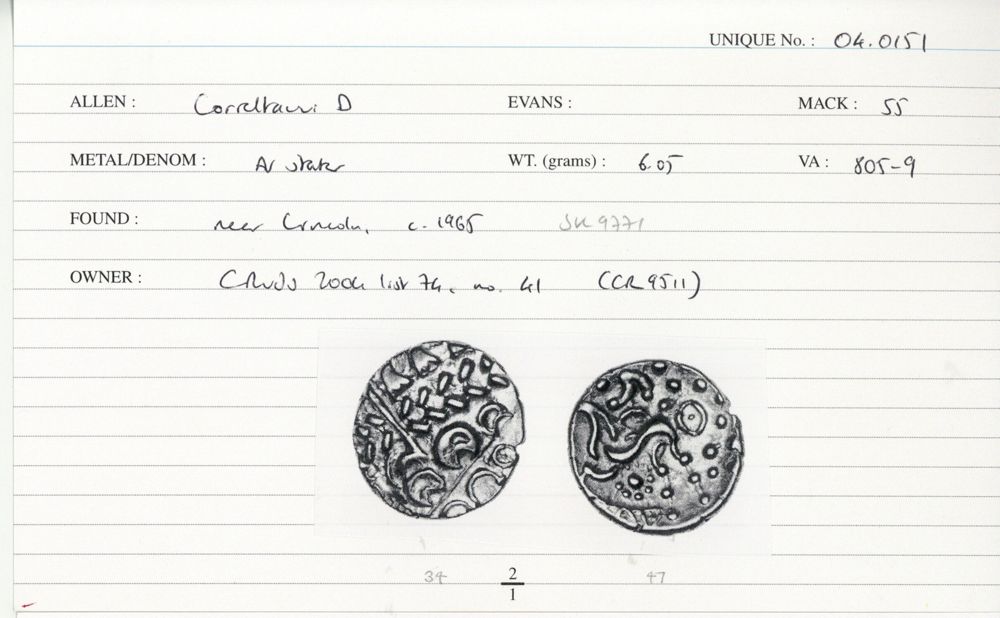 UNIQUE No. : 04.0151
ALLEN : Correltauvi D EVANS : MACK : 55
METAL/DENOM : AV stater WT. (grams) : 6.05 VA : 805-9
FOUND : near Lincoln, c. 1965 SK 9771
OWNER : CRUDS 2004 list 74, no. 41 (CR 9511)
34 2/1 47